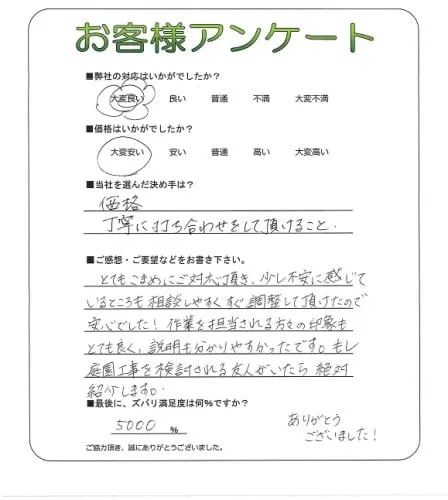 お客様アンケート
■弊社の対応はいかがでしたか?
大変良い 良い 普通 不満 大変不満
■価格はいかがでしたか?
大変安い 安い 普通 高い 大変高い
■当社を選んだ決め手は?
価格
丁寧に打ち合わせをして頂けること.
■ご感想・ご要望などをお書き下さい。
とてもこまめにご対応頂き、少し不安に感じて
いるところも相談しやすくすぐ調整して頂けたので
安心でした!作業を担当される方々の印象も
とても良く、説明も分かりやすかったです。もし
庭園工事を検討される友人がいたら絶対
紹介します。
■最後に、ズバリ満足度は何%ですか?
5000 %
ありがとう
ございました!
ご協力頂き、誠にありがとうございました。